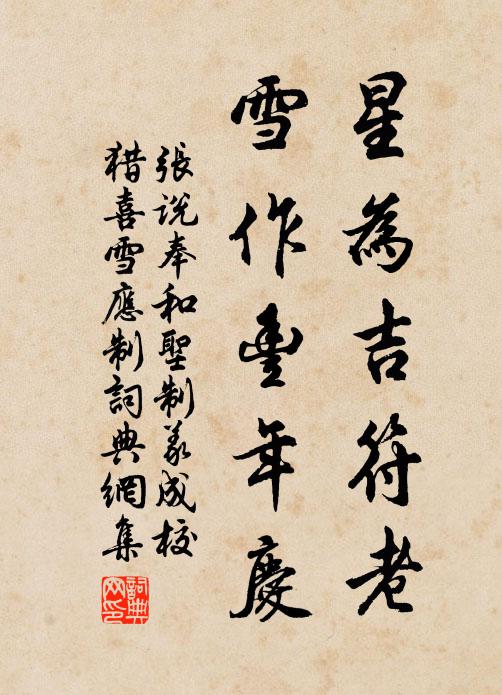 星為吉符老
雪作豊年慶
張説奉和聖制義成校
猎喜雪應制詞典網集
詞典网印